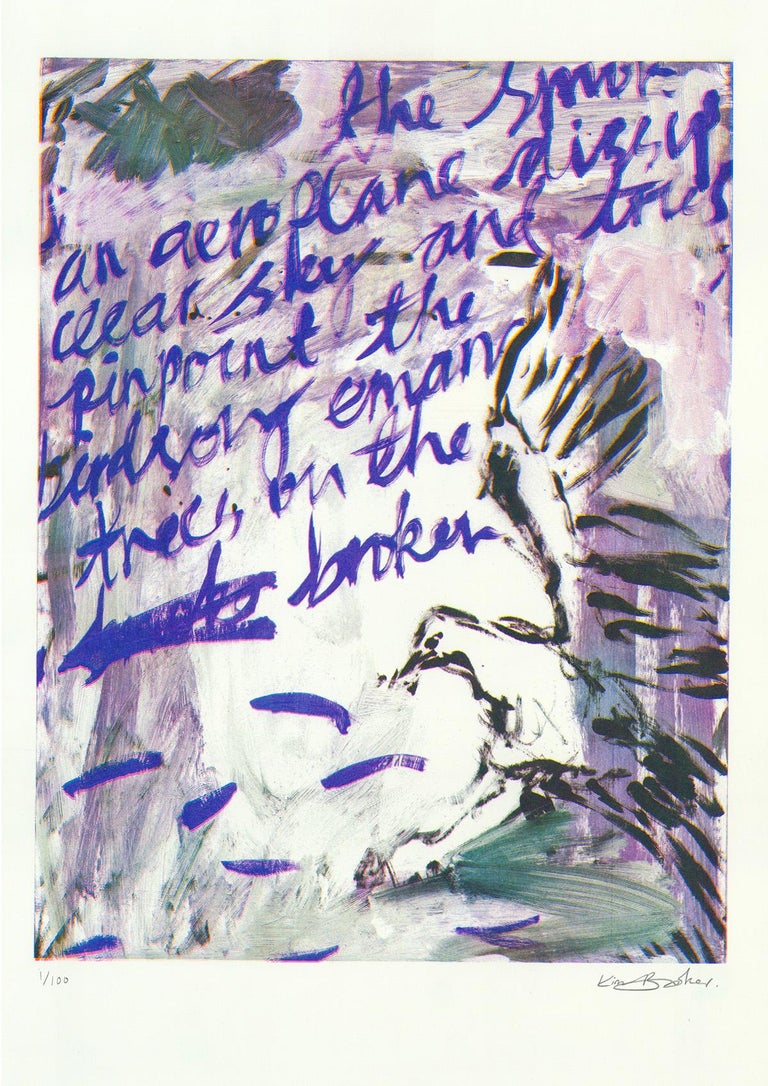 the smok
an aeroplane dissip
clear sky and tries
pinpoint the
birdsong eman
trees, on the
broken
1/100
Kim Booker.